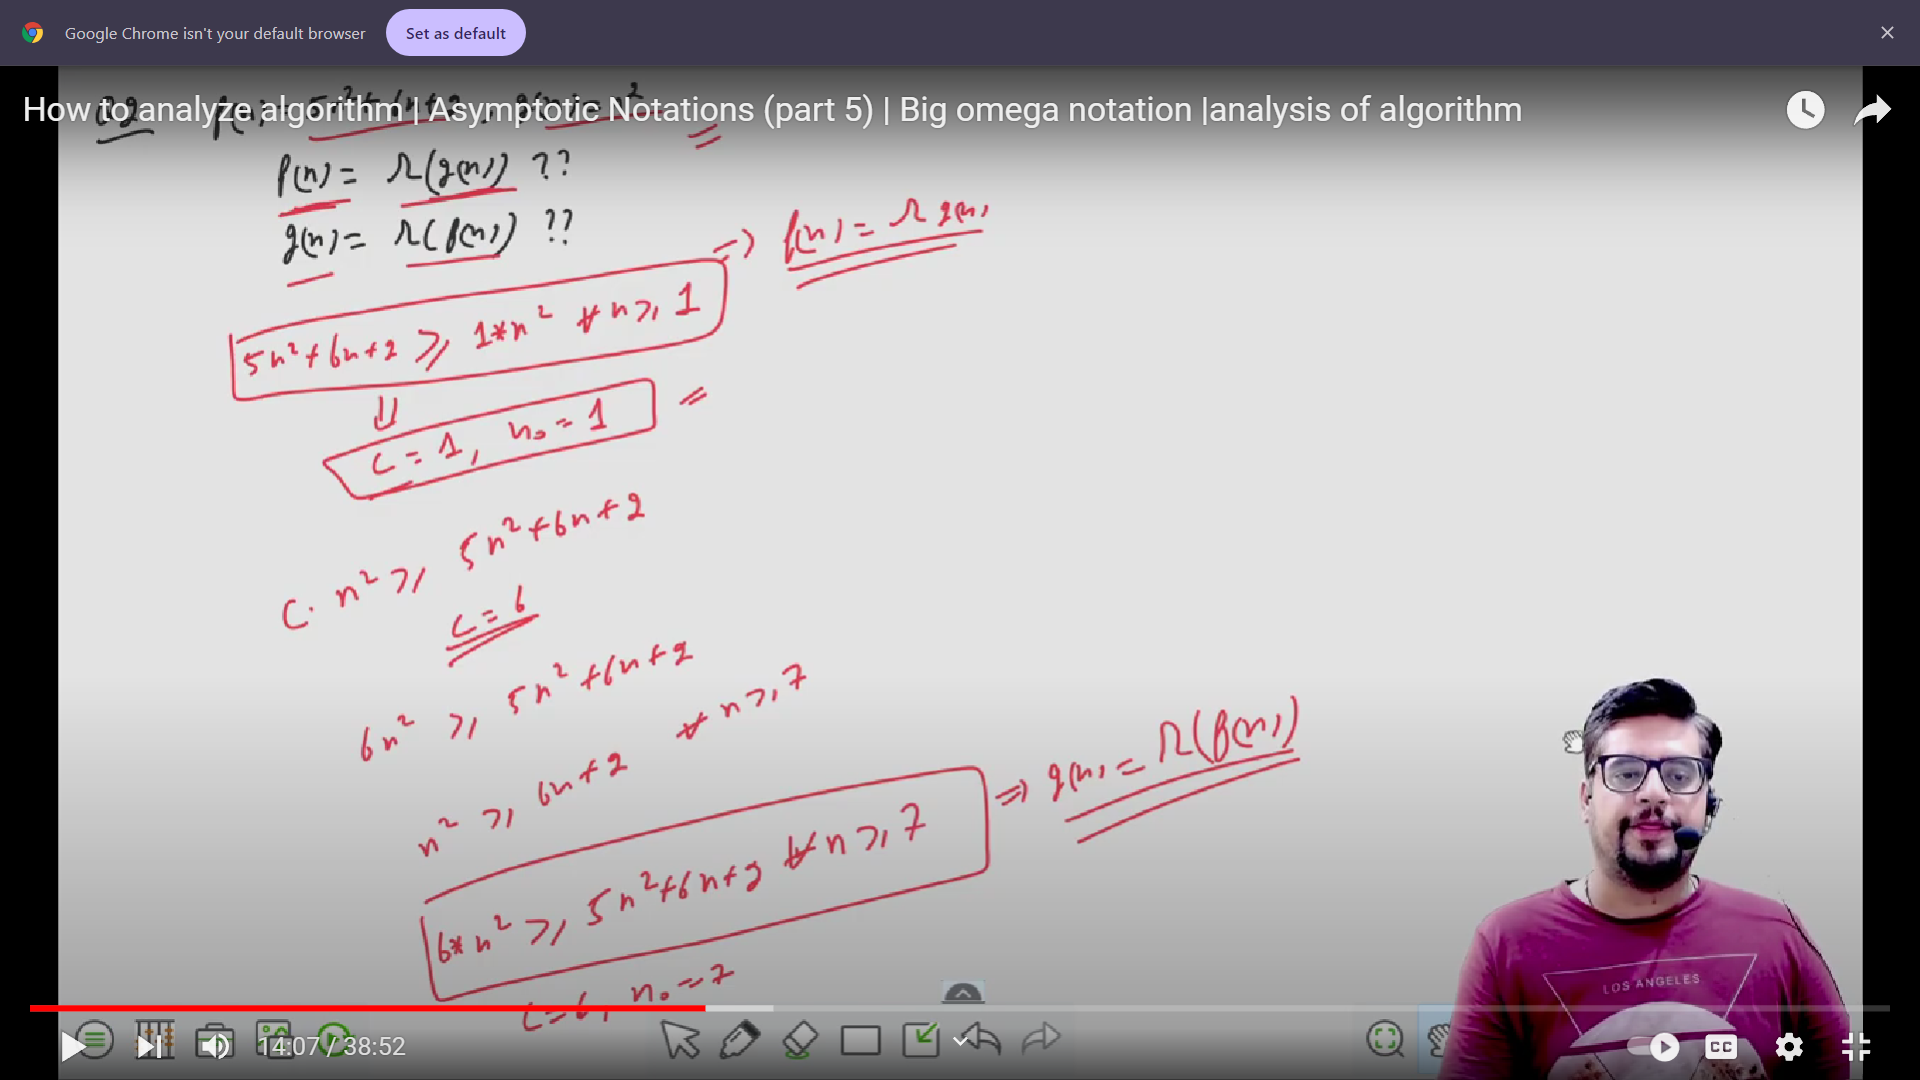 Google Chrome isn't your default browser Set as default
How to analyze algorithm | Asymptotic Notations (part 5) | Big omega notation |analysis of algorithm
f(n) = Ω(g(n)) ??
g(n) = Ω(f(n)) ??
=> f(n) = Ω g(n)
5n²+6n+2 ≥ 1*n² ∀ n ≥ 1
⇓
c = 1, n₀ = 1
C. n² ≥ 5n²+6n+2
c = 6
6n² ≥ 5n²+6n+2
n² ≥ 6n+2 ∀ n ≥ 7
6*n² ≥ 5n²+6n+2 ∀ n ≥ 7 => g(n) = Ω(f(n))
c = 6, n₀ = 7
LOS ANGELES
14:07 / 38:52
CC